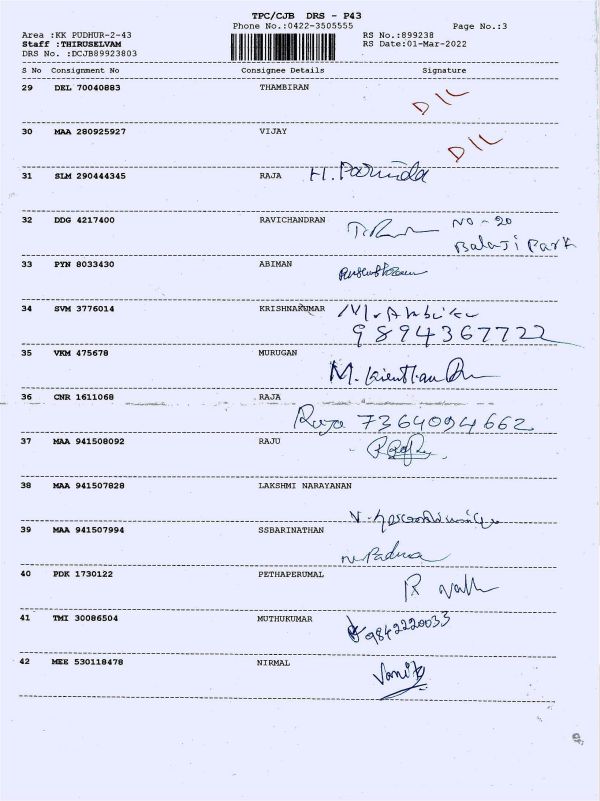 TPC/CJB DRS - P43
Phone No.:0422-3505555 Page No.:3
Area :KK PUDHUR-2-43 RS No.:899238
Staff :THIRUSELVAM RS Date:01-Mar-2022
DRS No. :DCJB89923803
S No Consignment No Consignee Details Signature
29 DEL 70040883 THAMBIRAN D/L
30 MAA 280925927 VIJAY D/L
31 SLM 290444345 RAJA H. Parmida
32 DDG 4217400 RAVICHANDRAN NO - 20
Balaji Park
33 PYN 8033430 ABIMAN
34 SVM 3776014 KRISHNAKUMAR
9894367722
35 VKM 475678 MURUGAN M.
36 CNR 1611068 RAJA
Raja 7364094662
37 MAA 941508092 RAJU
38 MAA 941507828 LAKSHMI NARAYANAN
39 MAA 941507994 SSBARINATHAN
N. Padma
40 PDK 1730122 PETHAPERUMAL R
41 TMI 30086504 MUTHUKUMAR 9842220033
42 MEE 530118478 NIRMAL